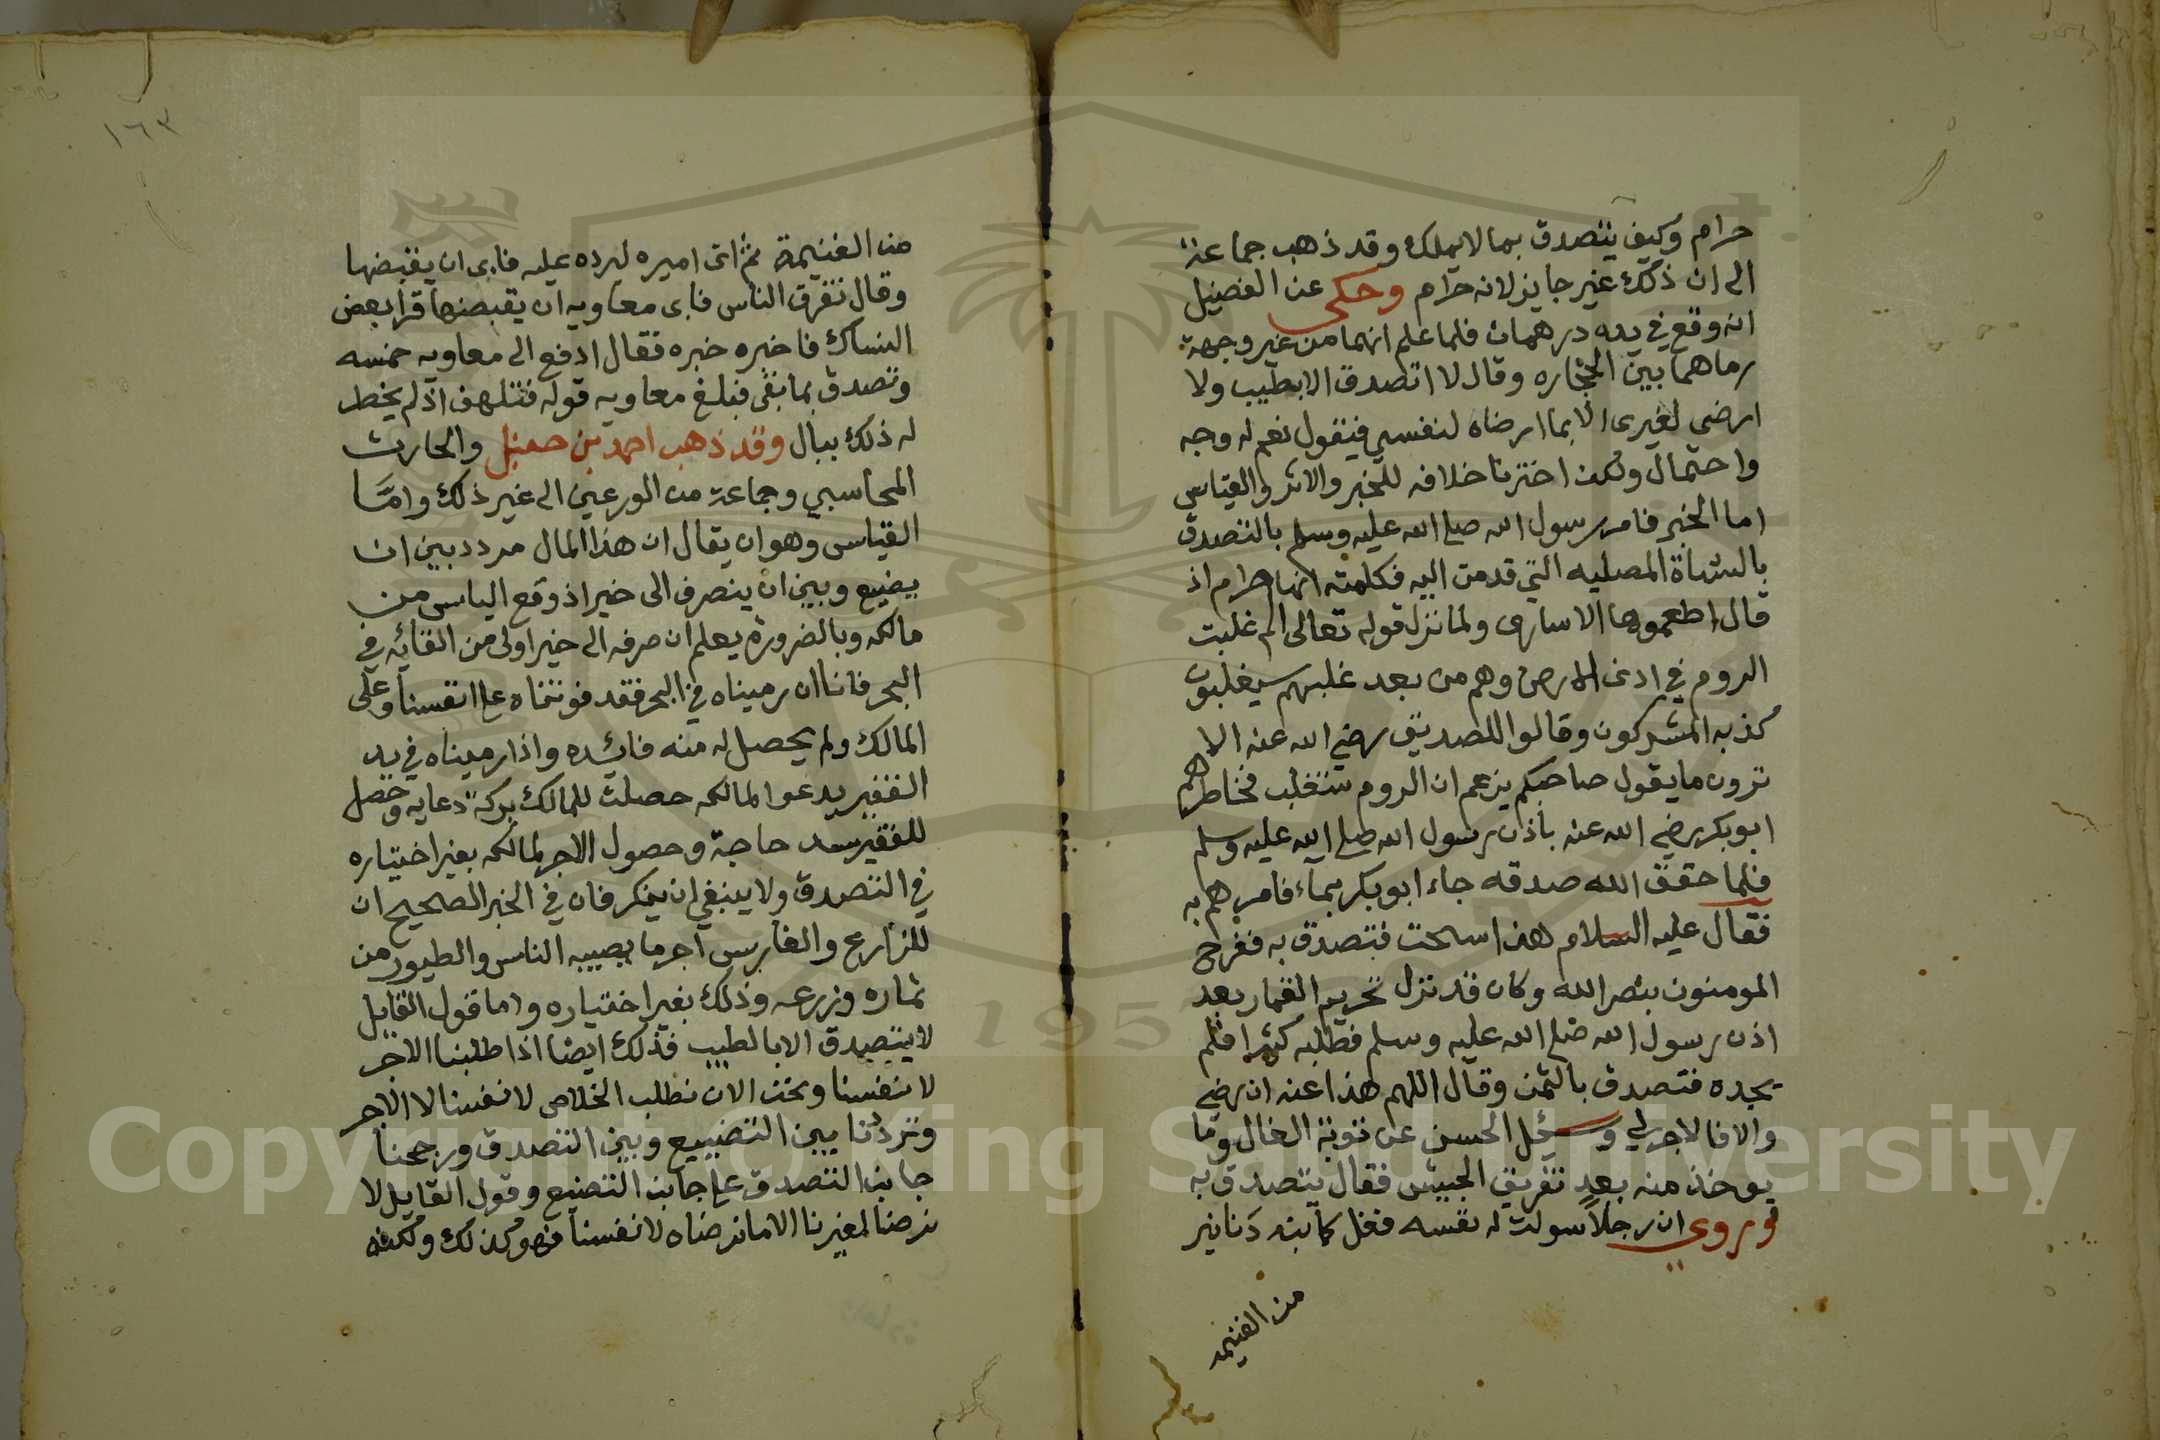 حرام وكيف يتصدق بما لا يملك وقد ذهب جماعة
الى ان ذلك غير جايز لانه حرام وحكى عن الفضيل
انه وقع في يده درهمان فلما علم انهما من غير وجهة
رماهما بين الحجاره وقال لا اتصدق الا بطيب ولا
ارضى لغيرى الا بما ارضاه لنفسي فنقول نعم له وجه
واحتمال ولكن اخترنا خلافه للخبر والاثر والقياس
اما الخبر فامر رسول الله صلى الله عليه وسلم بالتصدق
بالشاة المصليه التي قدمت اليه فكلمته انها حرام اذ
قال اطعموها الاسارى ولما نزل قوله تعالى الم غلبت
الروم في ادنى الارض وهم من بعد غلبهم سيغلبون
كذبه المشركون وقالوا للصديق رضي الله عنه الا
ترون ما يقول صاحبكم يزعم ان الروم ستغلب فخاطرهم
ابو بكر رضي الله عنه باذن رسول الله صلى الله عليه وسلم
فلما حقق الله صدقه جاء ابو بكر بما فامرهم به
فقال عليه السلام هذا سحت فتصدق به ففرح
المومنون بنصر الله وكان قد نزل تحريم القمار بعد
اذن رسول الله صلى الله عليه وسلم فطلبه كثيرا فلم
يجده فتصدق بالثمن وقال اللهم هذا عنه ان رضي
والا فالاجر لي وسئل الحسن عن توبة الغال وما
يوخذ منه بعد تفريق الجيش فقال يتصدق به
وروي ان رجلا سولت له نفسه فغل مائة دنانير
من الغنيمه
١٦٣
من الغنيمة ثم اتى اميره ليرده عليه فابى ان يقبضها
وقال تفرق الناس فابى معاويه ان يقبضها فرا بعض
النساك فاخبره خبره فقال ادفع الى معاويه خمسه
وتصدق بما بقى فبلغ معاويه قوله فتلهف اذ لم يخطر
له ذلك ببال وقد ذهب احمد بن حنبل والحارث
المحاسبي وجماعة من الورعين الى غير ذلك واما
القياس وهو ان يقال ان هذا المال مردد بين ان
يضيع وبين ان ينصرف الى خير اذ وقع الياس من
مالكه وبالضرورة يعلم ان صرفه الى خير اولى من القائه في
البحر فاننا ان رميناه في البحر فقد فوتناه على انفسنا وعلى
المالك ولم يحصل له منه فائده واذا رميناه في يد
الفقير يدعوا لمالكه حصلت للمالك بركة دعايه وحصل
للفقير سد حاجة وحصول الاجر لمالكه بغير اختياره
في التصدق ولا ينبغي ان ينكر فان في الخبر الصحيح ان
للزارع والغارس اجر ما يصيبه الناس والطيور من
ثماره وزرعه وذلك بغير اختياره واما قول القايل
لا يتصدق الا بالطيب فذلك ايضا اذا طلبنا الاجر
لانفسنا ونحن الان نطلب الخلاص لانفسنا لا الاجر
وترددنا بين التضييع وبين التصدق ورجحنا
جانب التصدق على جانب التضيع وقول القايل لا
نرضا لغيرنا الا ما نرضاه لانفسنا فهو كذلك ولكنه
Copyright © King Saud University
195